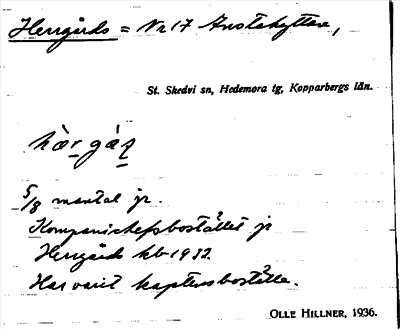 Herrgårds = Nr 17 Anstahyttan,
St. Skedvi sn, Hedemora tg, Kopparbergs län.
5/8 mantal jr.
Kompanichefsbostället jr
Herrgårds kb 1932
Har varit kaptensboställe.
OLLE HILLNER, 1936.